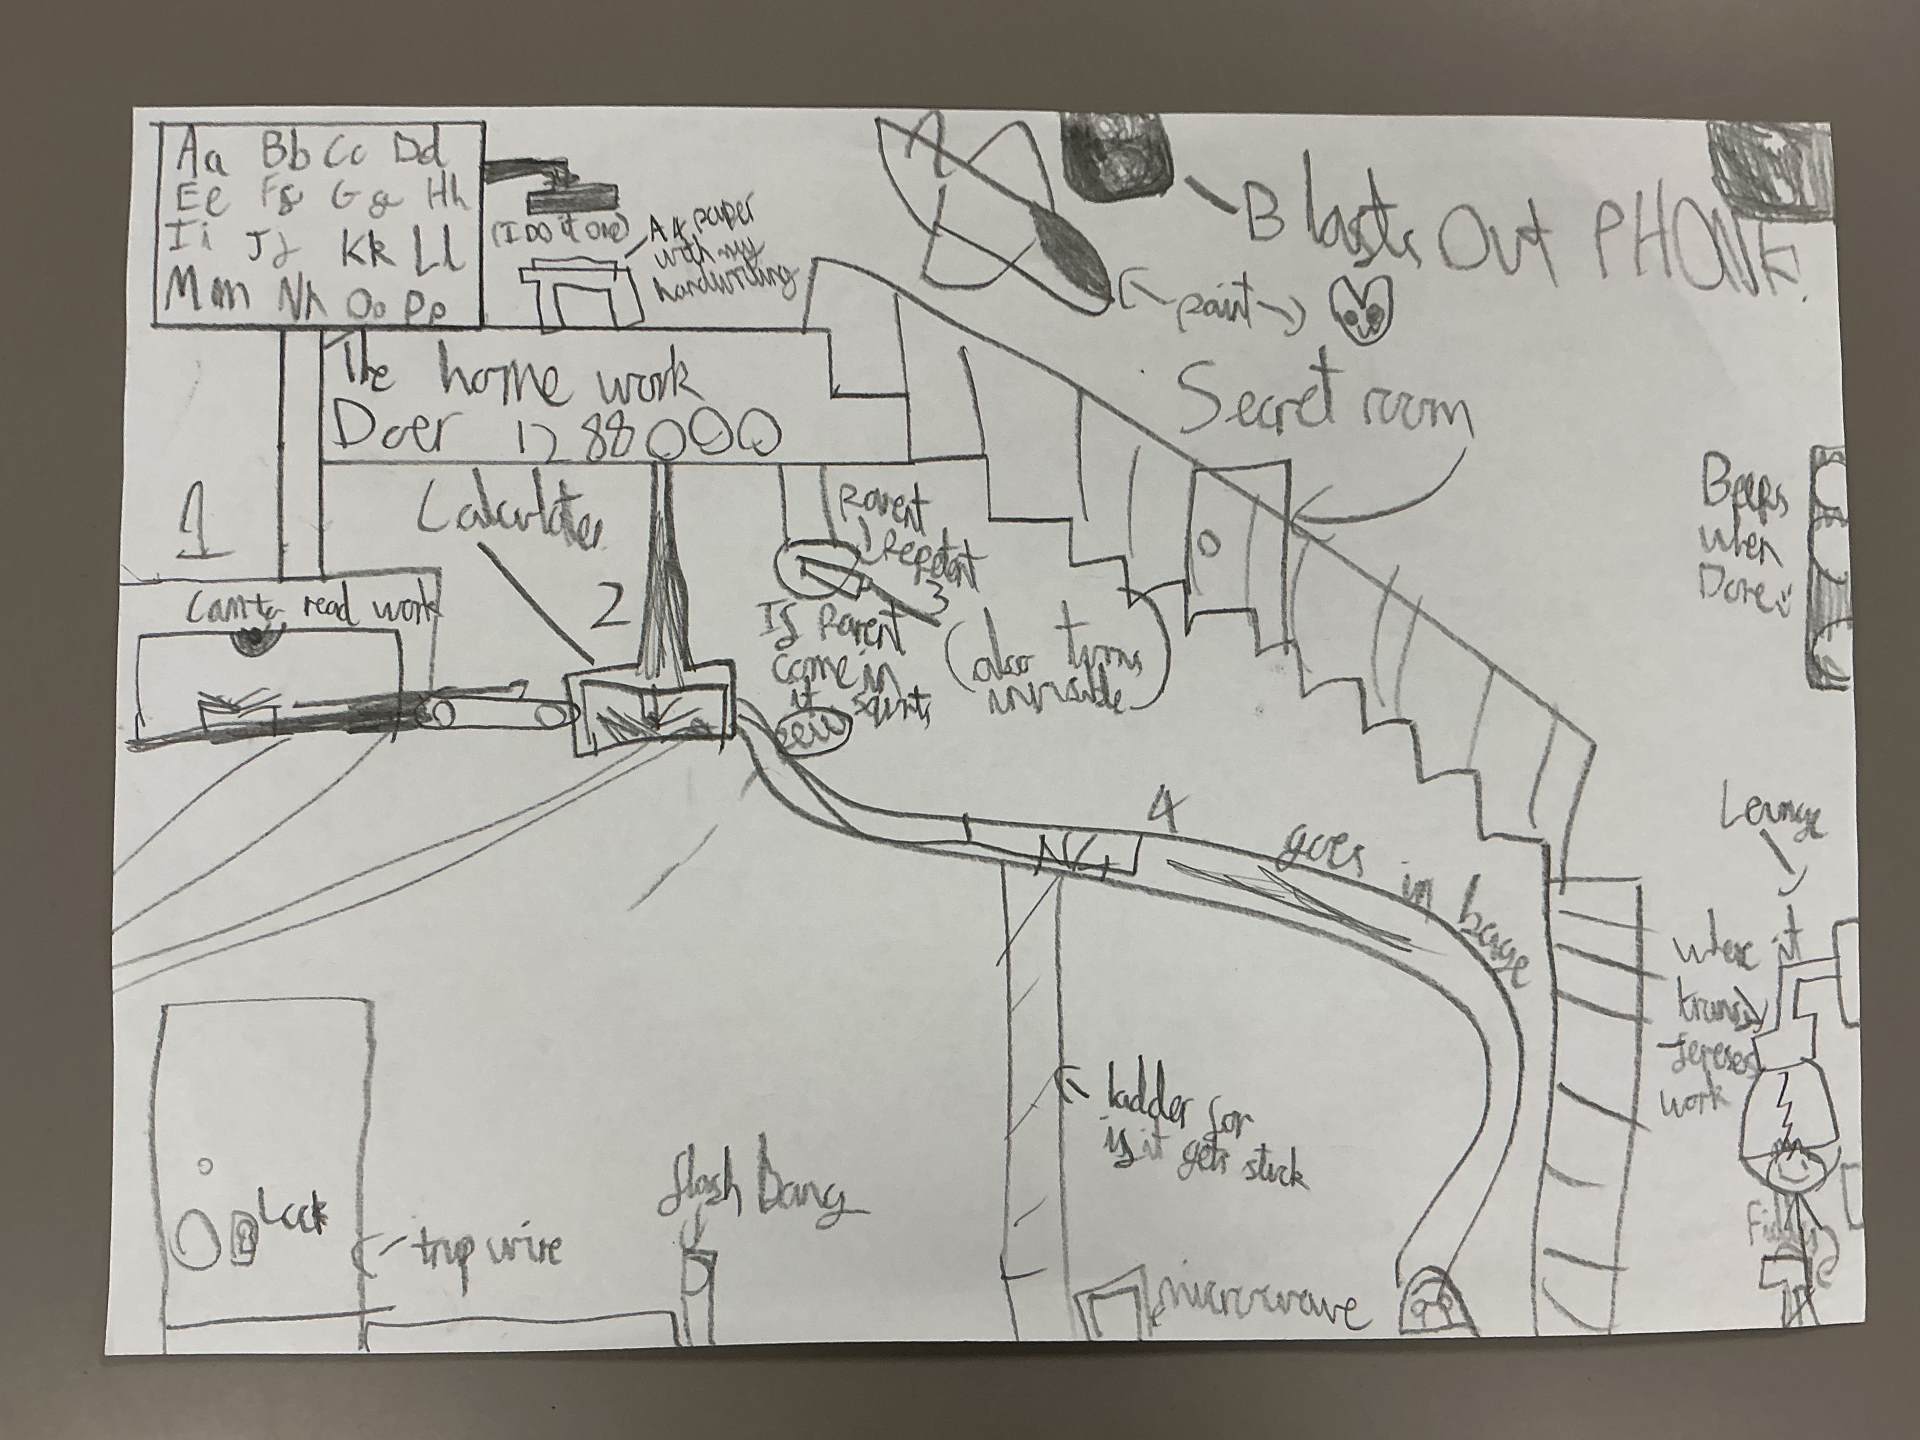 Aa Bb Cc Dd
Ee Ff Gg Hh
Ii Jj Kk Ll
Mm Nn Oo Pp
(I DO it one)
A4 paper
with my
handwriting
Blasts Out PHONK!
paint
The home work
Doer 1288000
Secret room
1
Calculates
2
Parent
repelent
3
If Parent
come in
it squirts
(also turns
invisible)
Beeps
when
Done
Cam to read work
4
goes in bage
Lounge
where it
trans
fereses
work
ladder for
is it gets stuck
flash bang
Lock
trip wire
microwave